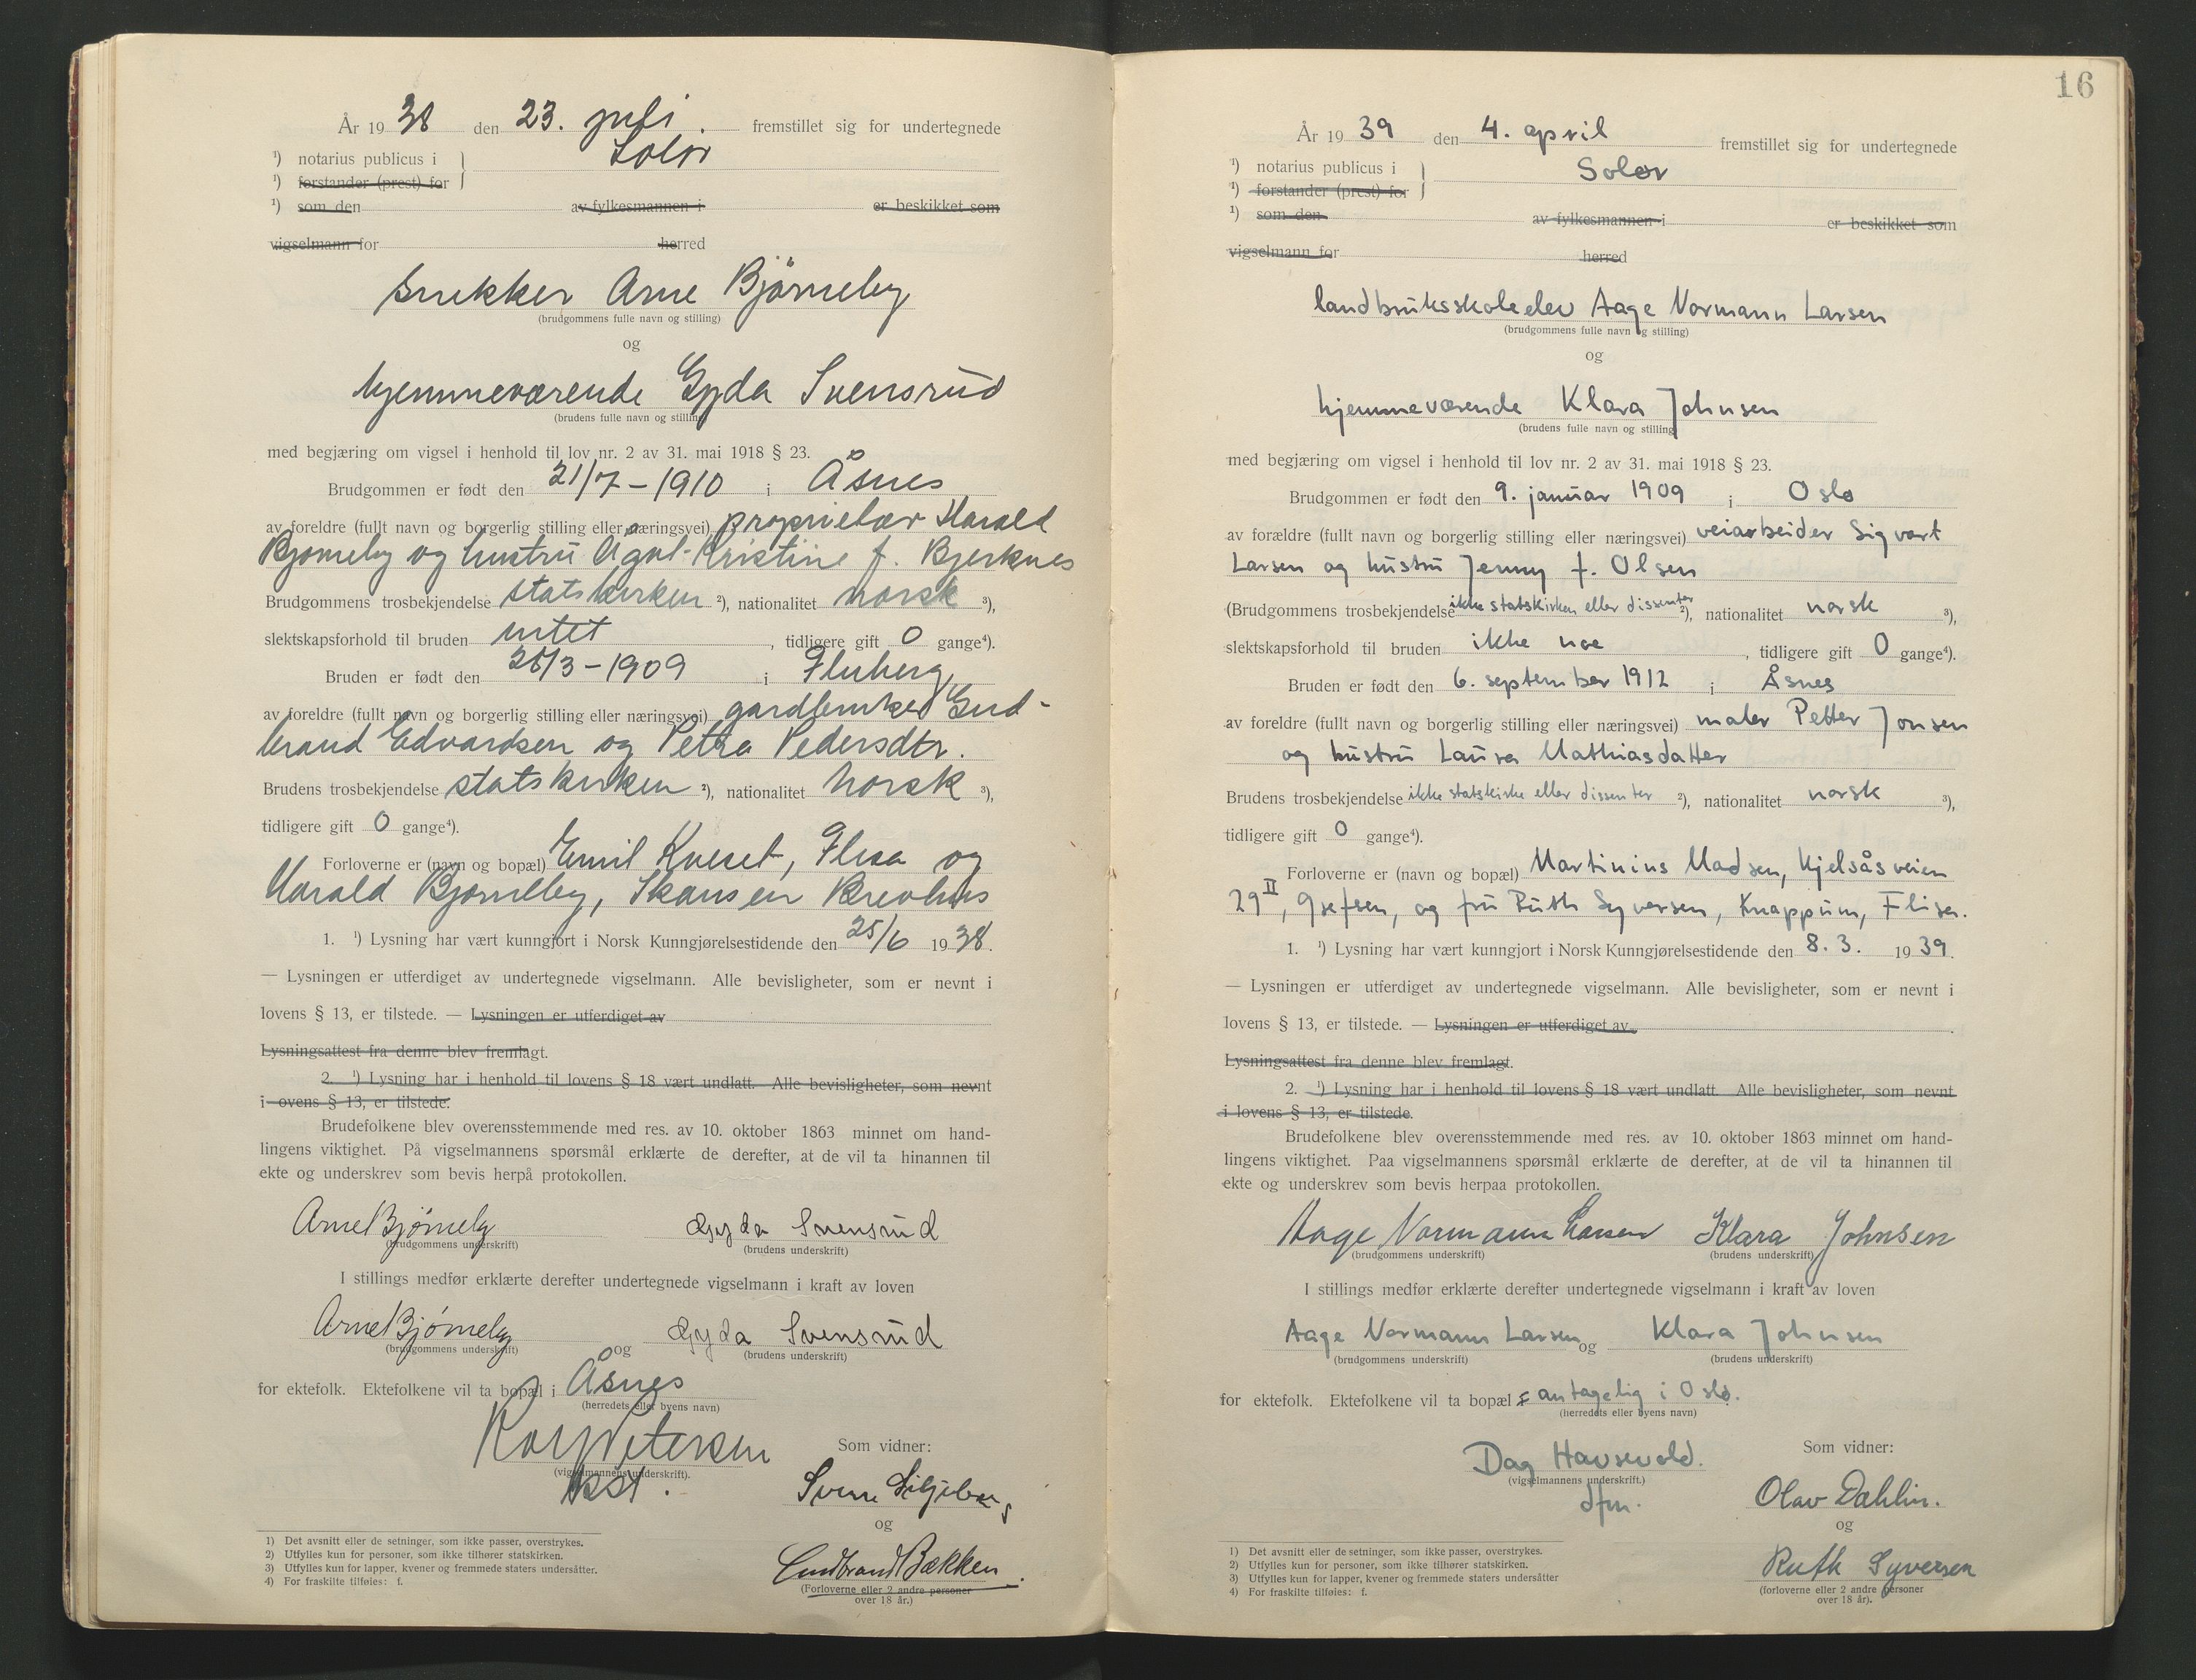 År 1938 den 23. juli. fremstillet sig for undertegnede
¹) notarius publicus i } Solør
¹) forstander (prest) for
¹) som den av fylkesmannen i er beskikket som
vigselmann for herred
snekker Arne Bjørneby
(brudgommens fulle navn og stilling)
og
hjemmeværende Gyda Svensrud
(brudens fulle navn og stilling)
med begjæring om vigsel i henhold til lov nr. 2 av 31. mai 1918 § 23.
Brudgommen er født den 21/7 – 1910 i Åsnes
av foreldre (fullt navn og borgerlig stilling eller næringsvei) proprietær Harald
Bjørneby og hustru Kristine f. Bjerknes
Brudgommens trosbekjendelse statskirken ²), nationalitet norsk ³),
slektskapsforhold til bruden intet, tidligere gift 0 gange⁴).
Bruden er født den /3 – 1909 i Fluberg
av foreldre (fullt navn og borgerlig stilling eller næringsvei) gardbruker Gud-
brand Edvardsen og Petra Pedersdtr.
Brudens trosbekjendelse statskirken ²), nationalitet norsk ³),
tidligere gift 0 gange⁴).
Forloverne er (navn og bopæl) Emil Kveset, Flisa og
Harald Bjørneby, Skansen Brevhus
1. ¹) Lysning har vært kunngjort i Norsk Kunngjørelsestidende den 25/6 1938.
— Lysningen er utferdiget av undertegnede vigselmann. Alle bevisligheter, som er nevnt i
lovens § 13, er tilstede. — Lysningen er utferdiget av
Lysningsattest fra denne blev fremlagt.
2. ¹) Lysning har i henhold til lovens § 18 vært undlatt. Alle bevisligheter, som nevnt
i ovens § 13, er tilstede.
Brudefolkene blev overensstemmende med res. av 10. oktober 1863 minnet om hand-
lingens viktighet. På vigselmannens spørsmål erklærte de derefter, at de vil ta hinannen til
ekte og underskrev som bevis herpå protokollen.
Arne Bjørneby Gyda Svensrud
(brudgommens underskrift) (brudens underskrift)
I stillings medfør erklærte derefter undertegnede vigselmann i kraft av loven
Arne Bjørneby og Gyda Svensrud
(brudgommens underskrift) (brudens underskrift)
for ektefolk. Ektefolkene vil ta bopæl i Åsnes
(herredets eller byens navn)
Petersen
(vigselmannens underskrift).
kst.
Som vidner:
Sverre Liljeberg
og
Gudbrand Bækken.
(Forloverne eller 2 andre personer
over 18 år.)
1) Det avsnitt eller de setninger, som ikke passer, overstrykes.
2) Utfylles kun for personer, som ikke tilhører statskirken.
3) Utfylles kun for lapper, kvener og fremmede staters undersåtter.
4) For fraskilte tilføies: f.
16
År 1939 den 4. april fremstillet sig for undertegnede
¹) notarius publicus i } Solør
¹) forstander (prest) for
¹) som den av fylkesmannen i er beskikket som
vigselmann for herred
landbruksskoleelev Aage Normann Larsen
(brudgommens fulle navn og stilling)
og
hjemmeværende Klara Johnsen
(brudens fulle navn og stilling)
med begjæring om vigsel i henhold til lov nr. 2 av 31. mai 1918 § 23.
Brudgommen er født den 9. januar 1909 i Oslo
av forældre (fullt navn og borgerlig stilling eller næringsvei) veiarbeider Sigvart
Larsen og hustru Jenny f. Olsen
(Brudgommens trosbekjendelse ikke statskirken eller dissenter ²), nationalitet norsk ³),
slektskapsforhold til bruden ikke noe, tidligere gift 0 gange⁴).
Bruden er født den 6. september 1912 i Åsnes
av foreldre (fullt navn og borgerlig stilling eller næringsvei) maler Petter Jonsen
og hustru Laura Mathiasdatter
Brudens trosbekjendelse ikke statskirke eller dissenter ²), nationalitet norsk ³),
tidligere gift 0 gange⁴).
Forloverne er (navn og bopæl) Martinius Madsen, Kjelsåsveien
29 II, Grefsen, og fru Ruth Syversen, Knappum, Flisa.
1. ¹) Lysning har vært kunngjort i Norsk Kunngjørelsestidende den 8. 3. 1939.
— Lysningen er utferdiget av undertegnede vigselmann. Alle bevisligheter, som er nevnt i
lovens § 13, er tilstede. — Lysningen er utferdiget av
Lysningsattest fra denne blev fremlagt.
2. ¹) Lysning har i henhold til lovens § 18 vært undlatt. Alle bevisligheter, som nevnt
i lovens § 13, er tilstede.
Brudefolkene blev overensstemmende med res. av 10. oktober 1863 minnet om hand-
lingens viktighet. Paa vigselmannens spørsmål erklærte de derefter, at de vil ta hinannen til
ekte og underskrev som bevis herpaa protokollen.
Aage Normann Larsen Klara Johnsen
(brudgommens underskrift) (brudens underskrift)
I stillings medfør erklærte derefter undertegnede vigselmann i kraft av loven
Aage Normann Larsen og Klara Johnsen
(brudgommens underskrift) (brudens underskrift)
for ektefolk. Ektefolkene vil ta bopæl antagelig i Oslo.
(herredets eller byens navn)
Dag Hausevold.
(vigselmannens underskrift.)
dfm.
Som vidner:
Olav Dahlin.
og
Ruth Syversen
(forloverne eller 2 andre personer
over 18 år).
1) Det avsnitt eller de setninger, som ikke passer, overstrykes.
2) Utfylles kun for personer, som ikke tilhører statskirken.
3) Utfylles kun for lapper, kvener og fremmede staters undersåtter
4) For fraskilte tilføies: f.